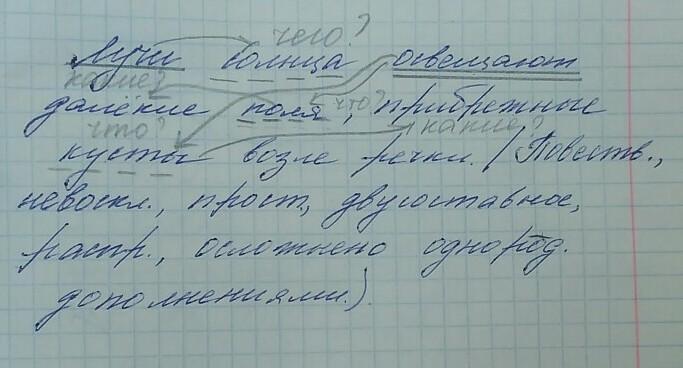 чего?
Лучи солнца освещают
какие?
далёкие поля, прибрежные
что? что? какие?
кусты возле речки. (Повеств.,
невоскл., прост., двусоставное,
распр., осложнено однород.
дополнениями.)